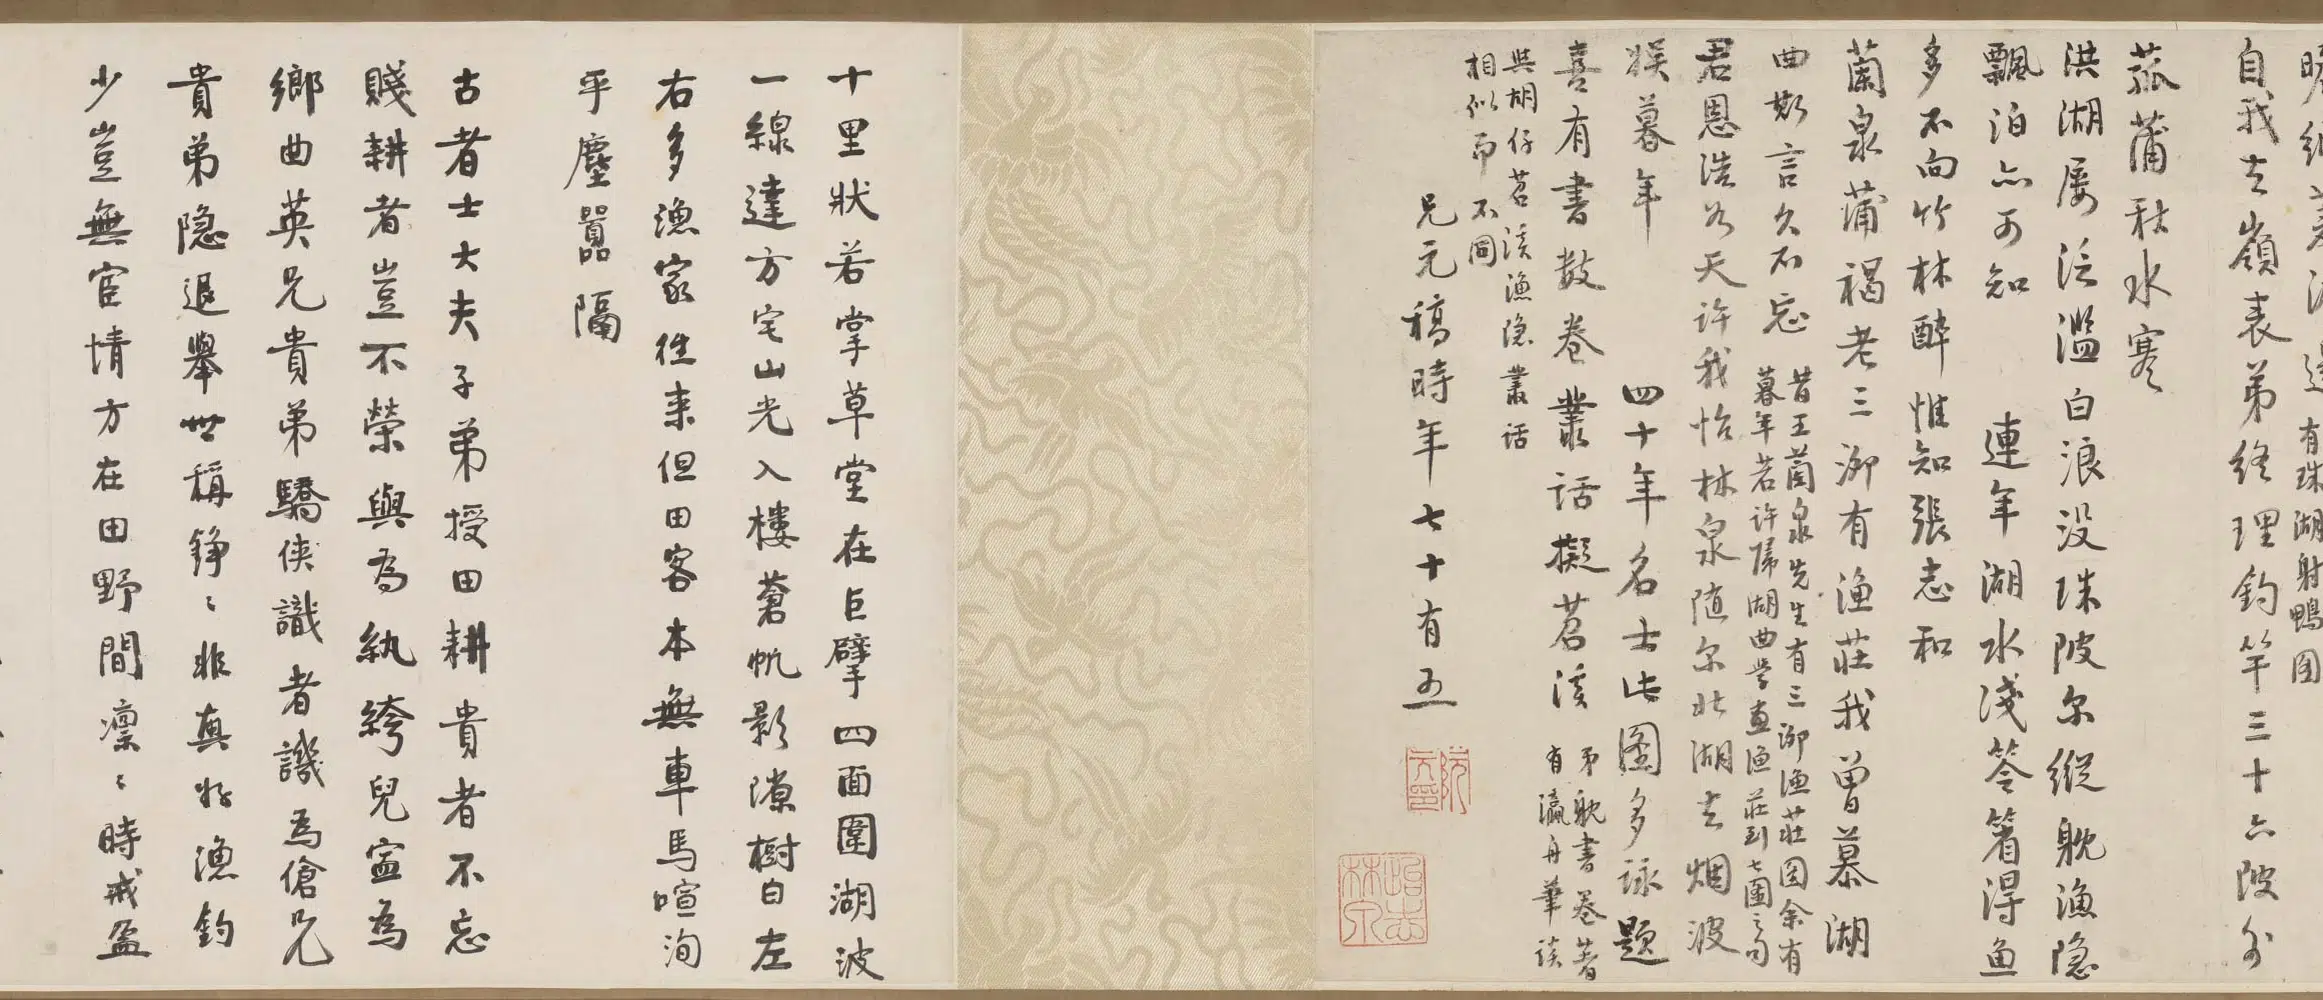 自我去嶺表弟終理釣竿三十六陂外
菰蒲秋水寒
洪湖屡泛濫白浪没珠陂尔縱耽漁隐
飄泊亦可知 連年湖水淺笭箵得魚
多不向竹林醉惟知張志和
蘭泉蒲褐老三泖有漁莊我曾慕湖
曲斯言久不忘
昔王蘭泉先生有三泖漁莊圖余有
暮年若許歸湖曲學畫漁莊到七圖之句
君恩浩如天許我怡林泉随尔北湖去烟波
娱暮年 四十年名士此图多詠題
喜有書數卷叢話擬苕溪
弟耽書卷著
有瀛舟筆談
與胡仔苕溪漁隐叢話
相似而不同
兄元稿時年七十有五
阮元印
怡志林泉
十里狀若掌草堂在巨擘四面圍湖波
一線達方宅山光入樓蒼帆影隙樹白左
右多漁家往来但田客本無車馬喧洵
乎塵囂隔
古者士大夫子弟授田耕貴者不忘
賤耕者豈不榮與為紈絝兒寧為
鄉曲英兄貴弟驕俠識者譏為傖兄
貴弟隐退舉世稱錚〻非真好漁釣
少豈無宦情方在田野間凛〻時戒盈